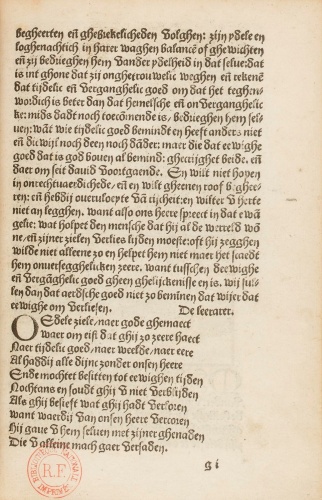 begheerten eñ ghebrekelicheden volghen: zijn ydele en
loghenachtich in harer waghen balance of ghewichten
eñ zij bedrieghen hem vander ydelheid in dat selue: dat
is int ghone dat zij onghetrouwelic weghen eñ rekenē
dat tijdelic eñ verganghelic goed om dat het teghen-
wordich is beter dan dat hemelsche eñ onverganghelic
ke: mids dadt noch toecomende is, bedrieghen hem sel-
uen: wāt wie tijdelic goed bemindt en heeft anders niet
eñ die wijl noch deen noch dāder: maer die dat eewighe
goed dat is god bouen al bemind: ghecrijght beide. eñ
daer om seit dauid voortgaende. En wilt niet hopen
in onrechtuaerdichede, eñ en wilt gheenen roof beghee-
ren: eñ hebdij oueruloeyt vā rijcheit: en wilter v herte
niet an legghen. want also ons heere spreect in dat ewā
gelie: wat holpet den mensche dat hij al de weereld wō
ne, eñ zijner zielen verlies lijden moeste: oft hij zegghen
wilde niet alleene zo en helpet hem niet maer het scaedt
hem onuersegghelicken zeere. want tusschen deewighe
eñ vergāghelic goed gheen ghelijckenisse en is. wij sul-
len dan dat aerdsche goed niet zo beminen dat wijer dat
eewighe om verliesen. De leeraer.
O Edele ziele, naer gode ghemaect
waer om eist dat ghij zo zeere haect
Naer tijdelic goed, naer weelde, naer eere
Al haddij alle dijnc zonder onsen heere
Ende mochtet besitten tot eewighen tijden
Nochtans en soudt ghij v niet verblijden
Als ghij besieft wat ghij hadt verloren
want waerdij van onsen heere vercoren
Hij gaue v hem seluen met zijner ghenaden
Die v alleine mach gaer versaden.
g i
BIBLIOTHEQUE NATIONALE
R.F.
IMPRIMÉS